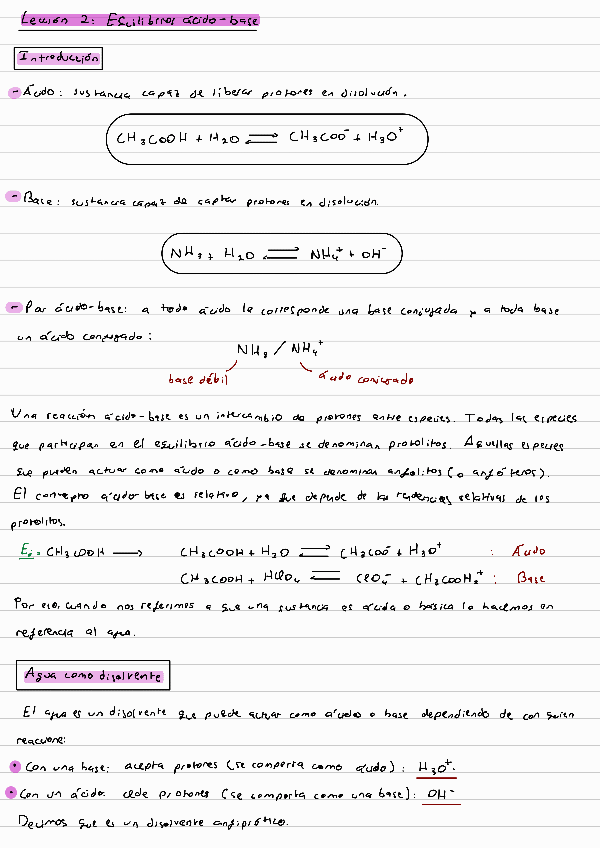 Lección 2: Equilibrios ácido-base
Introducción
- Ácido: sustancia capaz de liberar protones en disolución.
CH₃COOH + H₂O ⇌ CH₃COO⁻ + H₃O⁺
- Base: sustancia capaz de captar protones en disolución.
NH₃ + H₂O ⇌ NH₄⁺ + OH⁻
- Par ácido-base: a todo ácido le corresponde una base conjugada y a toda base
un ácido conjugado:
NH₃ / NH₄⁺
base débil ácido conjugado
Una reacción ácido-base es un intercambio de protones entre especies. Todas las especies
que participan en el equilibrio ácido-base se denominan protolitos. Aquellas especies
que pueden actuar como ácido o como base se denominan anfolitos (o anfóteros).
El concepto ácido-base es relativo, ya que depende de las tendencias relativas de los
protolitos.
Ej: CH₃COOH → CH₃COOH + H₂O ⇌ CH₃COO⁻ + H₃O⁺ : Ácido
CH₃COOH + HClO₄ ⇌ ClO₄⁻ + CH₃COOH₂⁺ : Base
Por eso, cuando nos referimos a que una sustancia es ácida o básica lo hacemos en
referencia al agua.
Agua como disolvente
El agua es un disolvente que puede actuar como ácido o base dependiendo de con quien
reaccione:
• Con una base: acepta protones (se comporta como ácido): H₃O⁺.
• Con un ácido: cede protones (se comporta como una base): OH⁻
Decimos que es un disolvente anfiprótico.